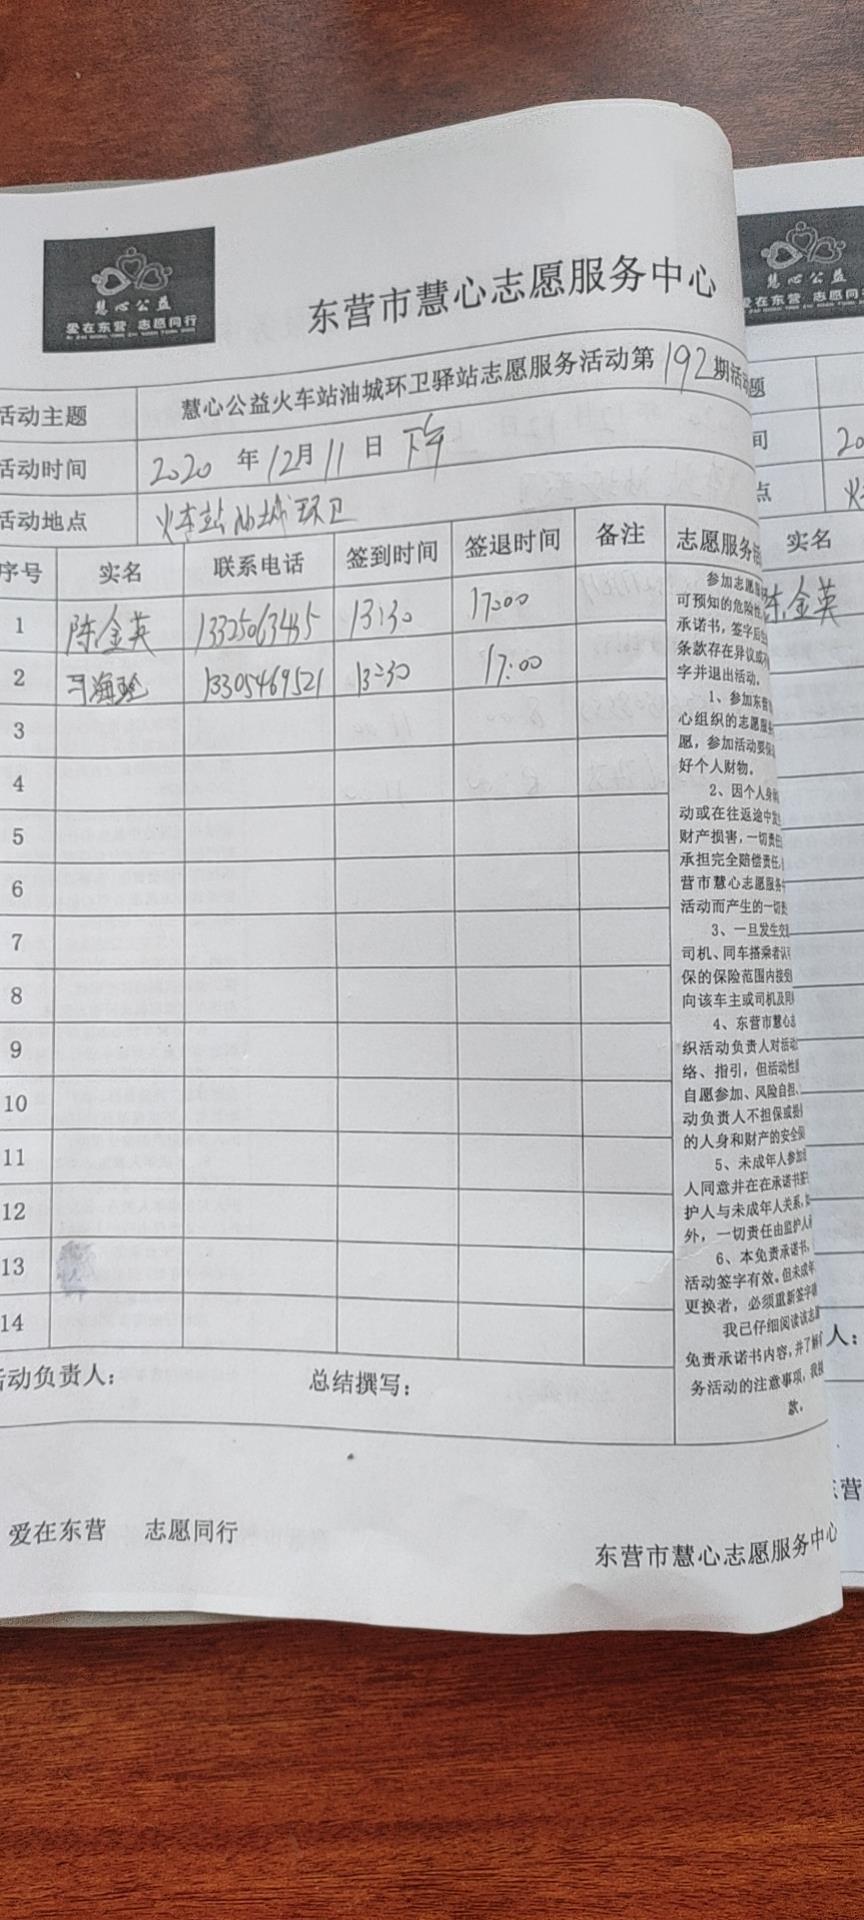 慧心公益
爱在东营 志愿同行
东营市慧心志愿服务中心
活动主题 慧心公益火车站油城环卫驿站志愿服务活动第192期活动
活动时间 2020 年 12月 11 日 下午
活动地点 火车站油城环卫
序号 实名 联系电话 签到时间 签退时间 备注 志愿服务
1 陈金英 13:30 17:00
2 13305469521 13:30 17:00
3
4
5
6
7
8
9
10
11
12
13
14
参加志愿服
可预知的危险性
承诺书,签字后
条款存在异议或
字并退出活动。
1、参加东营
心组织的志愿服
愿,参加活动要
好个人财物。
2、因个人身
动或在往返途中发
财产损害,一切责任
承担完全赔偿责任
营市慧心志愿服务
活动而产生的一切
3、一旦发生交
司机、同车搭乘者
保的保险范围内接
向该车主或司机及同
4、东营市慧心志
织活动负责人对活动
络、指引,但活动性
自愿参加、风险自担、
动负责人不担保或
的人身和财产的安全
5、未成年人参加
人同意并在在承诺书签
护人与未成年人关系,
外,一切责任由监护人
6、本免责承诺书,
活动签字有效。但未成年
更换者,必须重新签字
我已仔细阅读该志愿
免责承诺书内容,并了解
务活动的注意事项,我
款。
活动负责人: 总结撰写:
爱在东营 志愿同行
东营市慧心志愿服务中心
慧心公益
爱在东营 志愿同
题
间 20
点 火
实名
陈金英
人:
东营